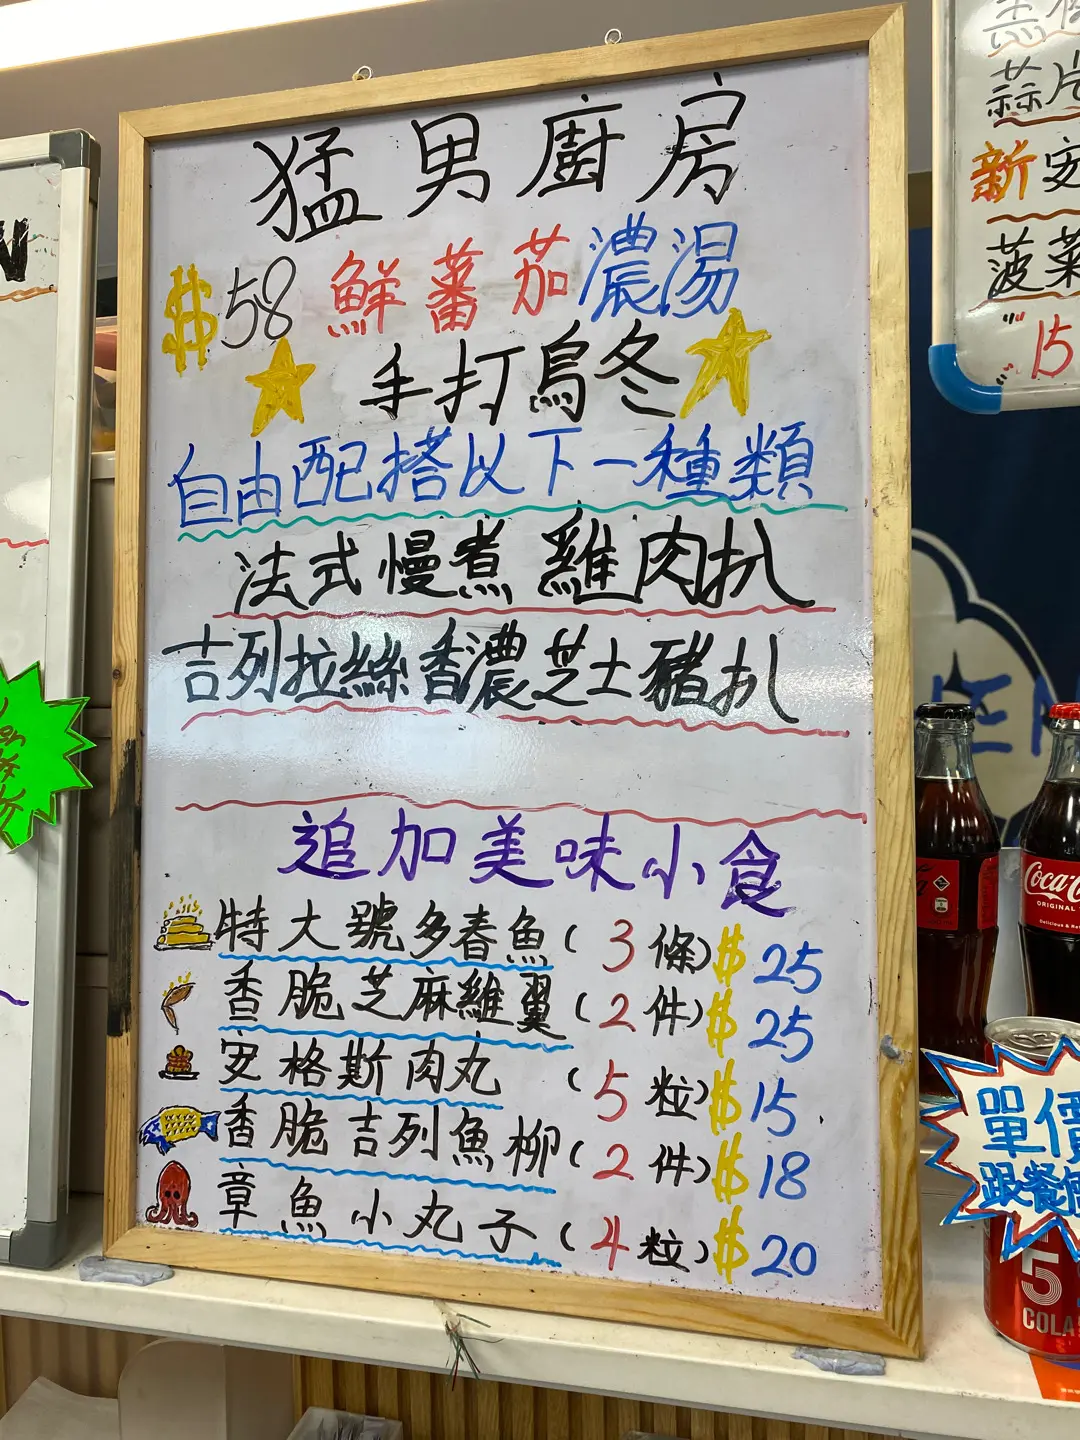 猛男廚房
$58 鮮蕃茄濃湯
手打烏冬
自由配搭以下一種類
法式慢煮雞肉扒
吉列拉絲香濃芝士豬扒
追加美味小食
特大號多春魚(3條)$25
香脆芝麻雞翼(2件)$25
安格斯肉丸(5粒)$15
香脆吉列魚柳(2件)$18
章魚小丸子(4粒)$20
蒜片
新 安
菠菜
15
單價
跟餐
Coca-C
ORIGINAL
5
COLA